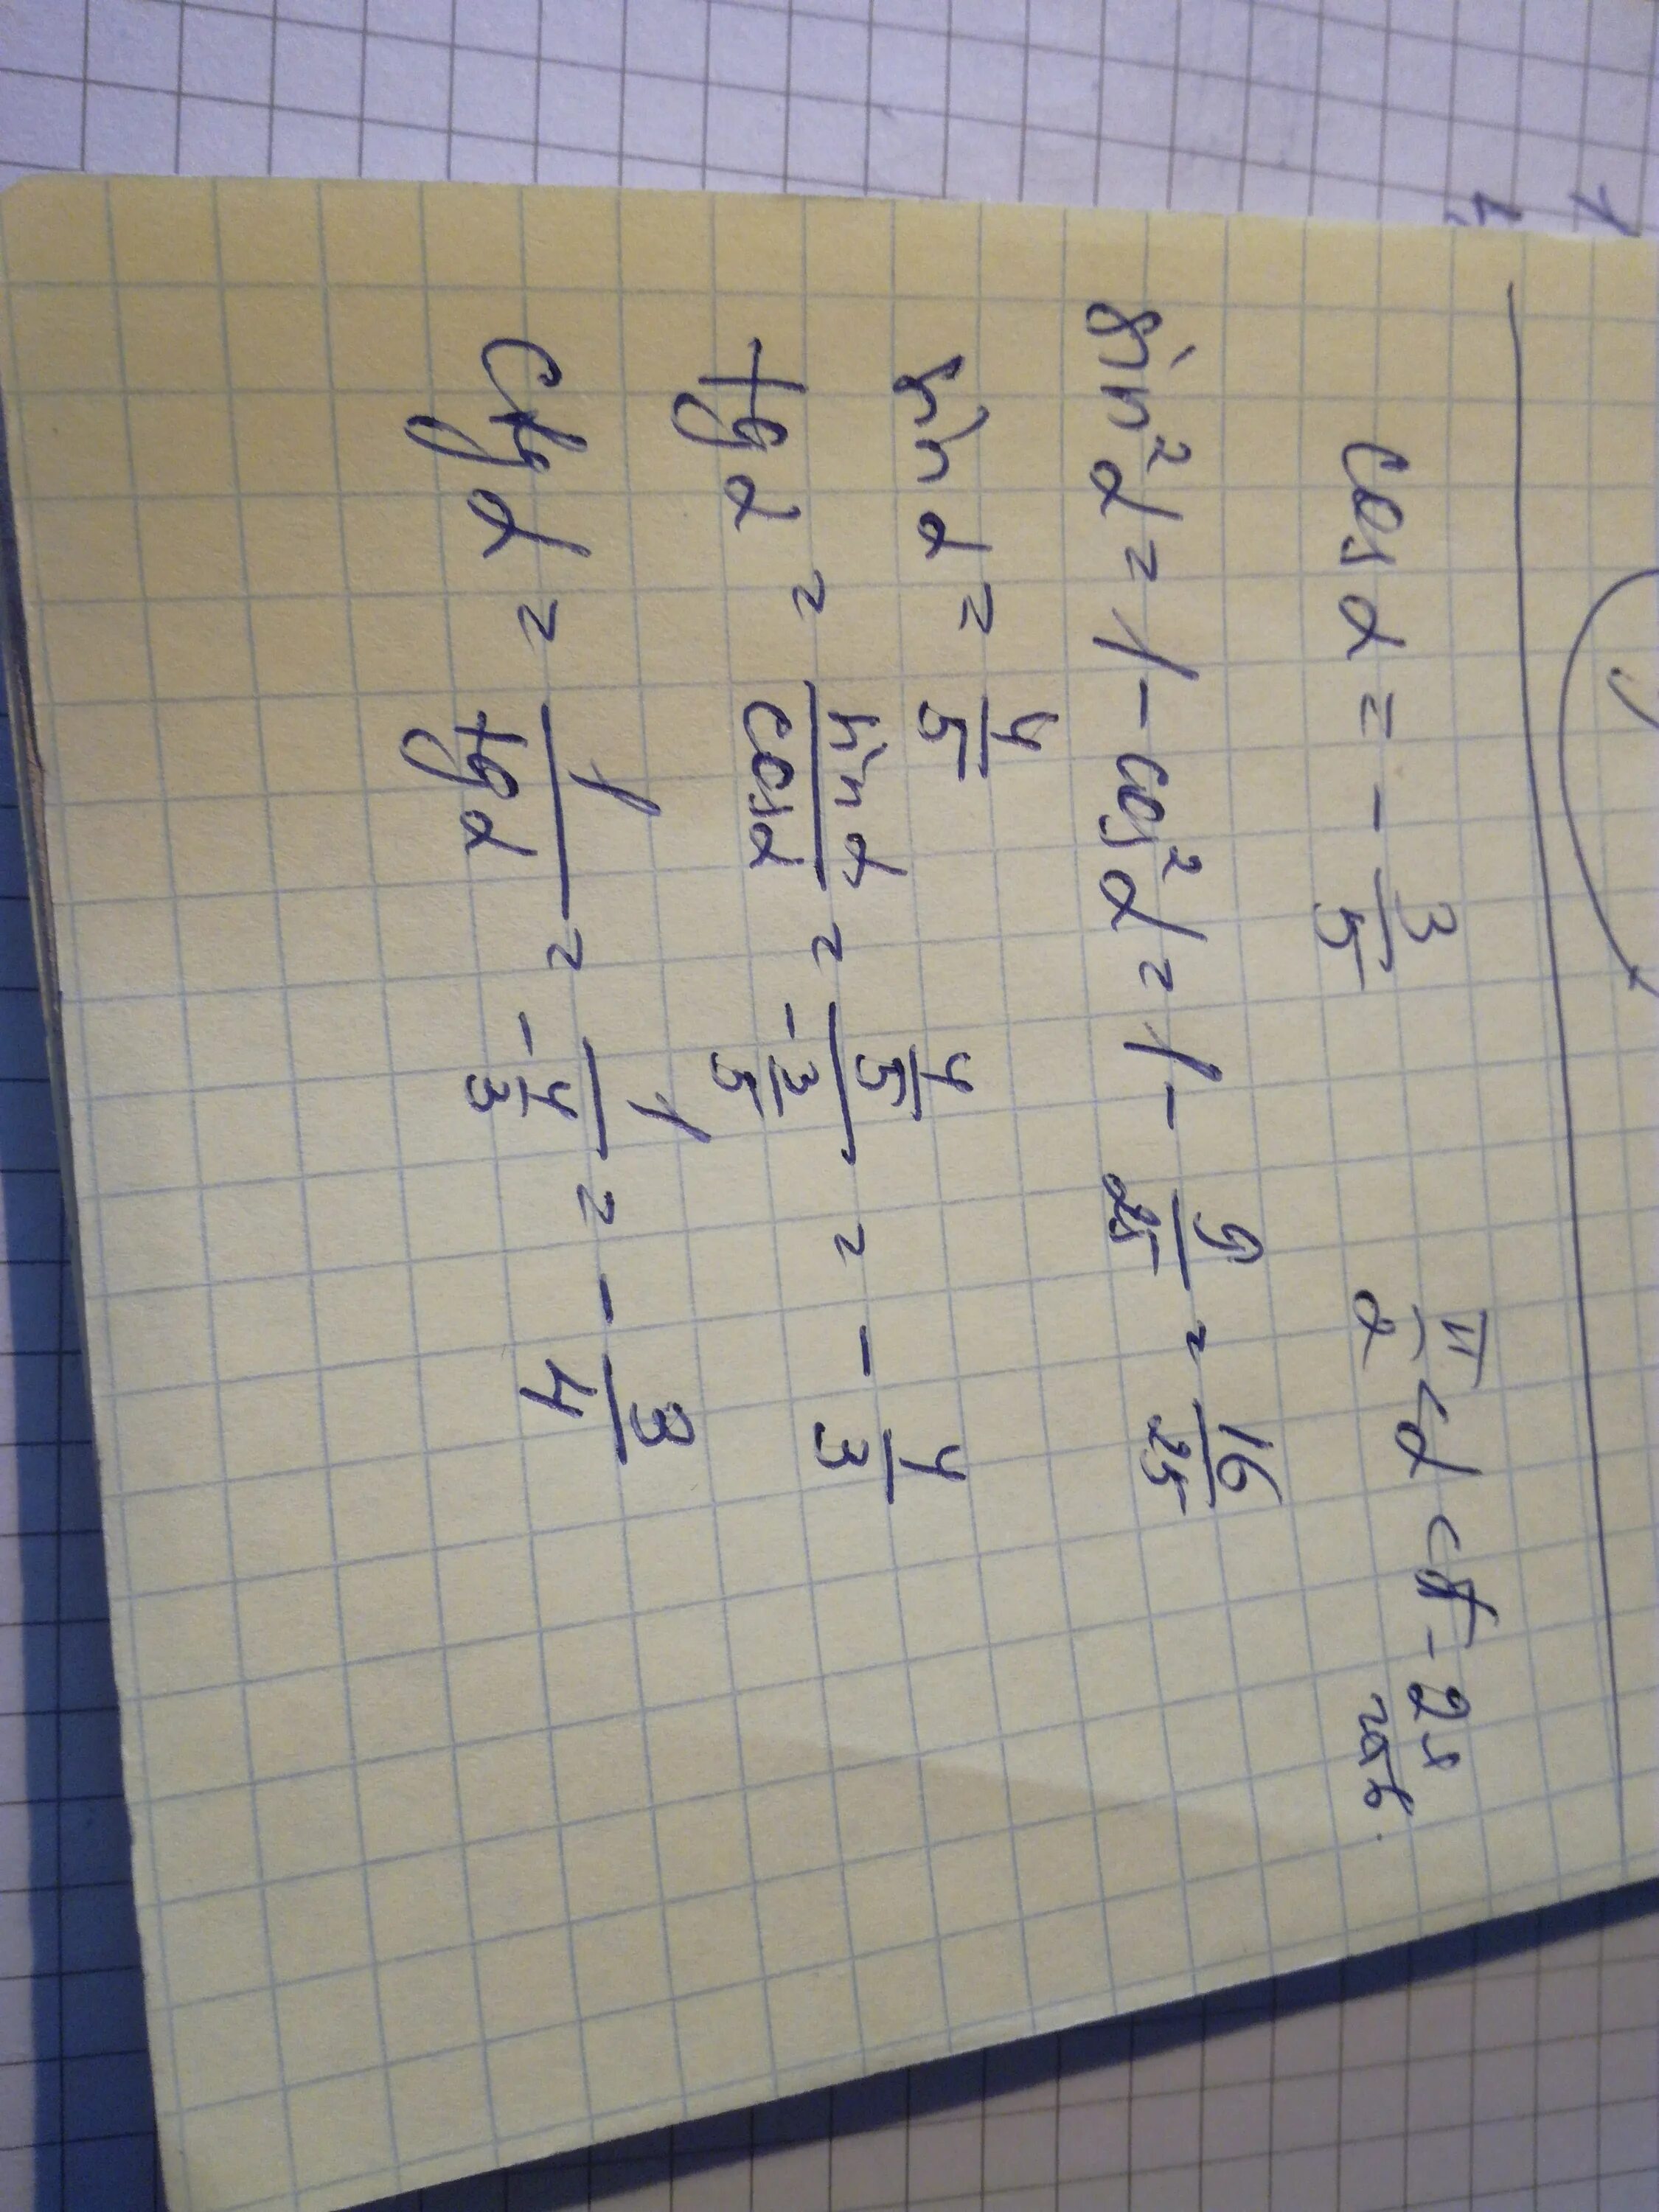 cos α = - 3/5 π/2 < α < π - 2я четв.
sin²α = 1 - cos²α = 1 - 9/25 = 16/25
sin α = 4/5
tg α = sin α/cos α = (4/5)/(-3/5) = - 4/3
ctg α = 1/tg α = 1/(-4/3) = - 3/4